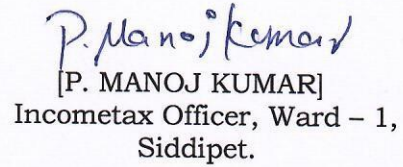 P. Manoj Kumar
[P. MANOJ KUMAR]
Incometax Officer, Ward – 1,
Siddipet.